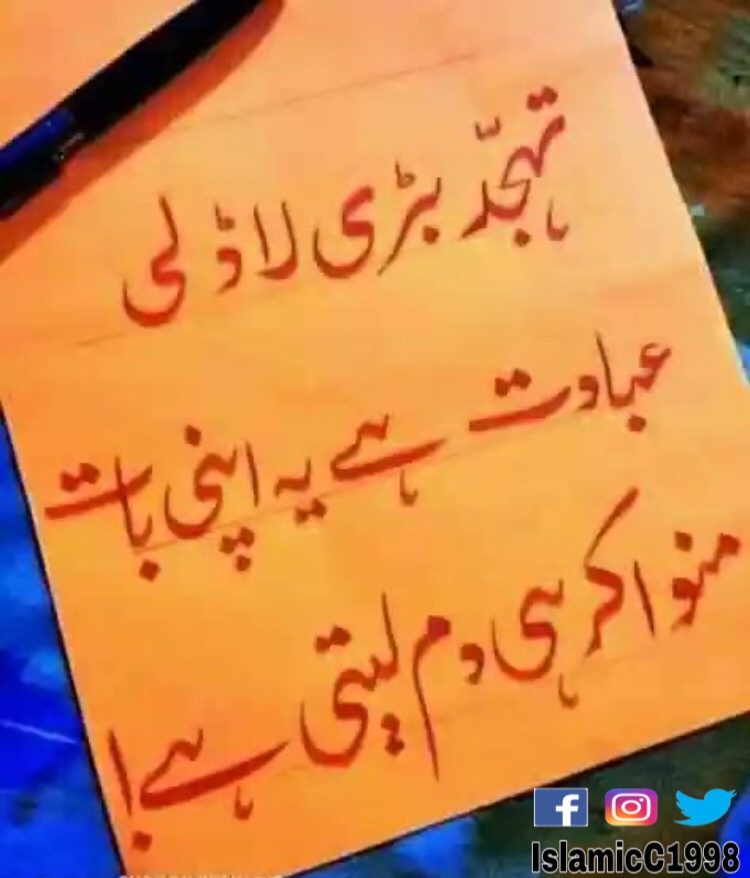 تہجّد بڑی لاڈلی
عبادت ہے یہ اپنی بات
منوا کر ہی دم لیتی ہے!
IslamicC1998